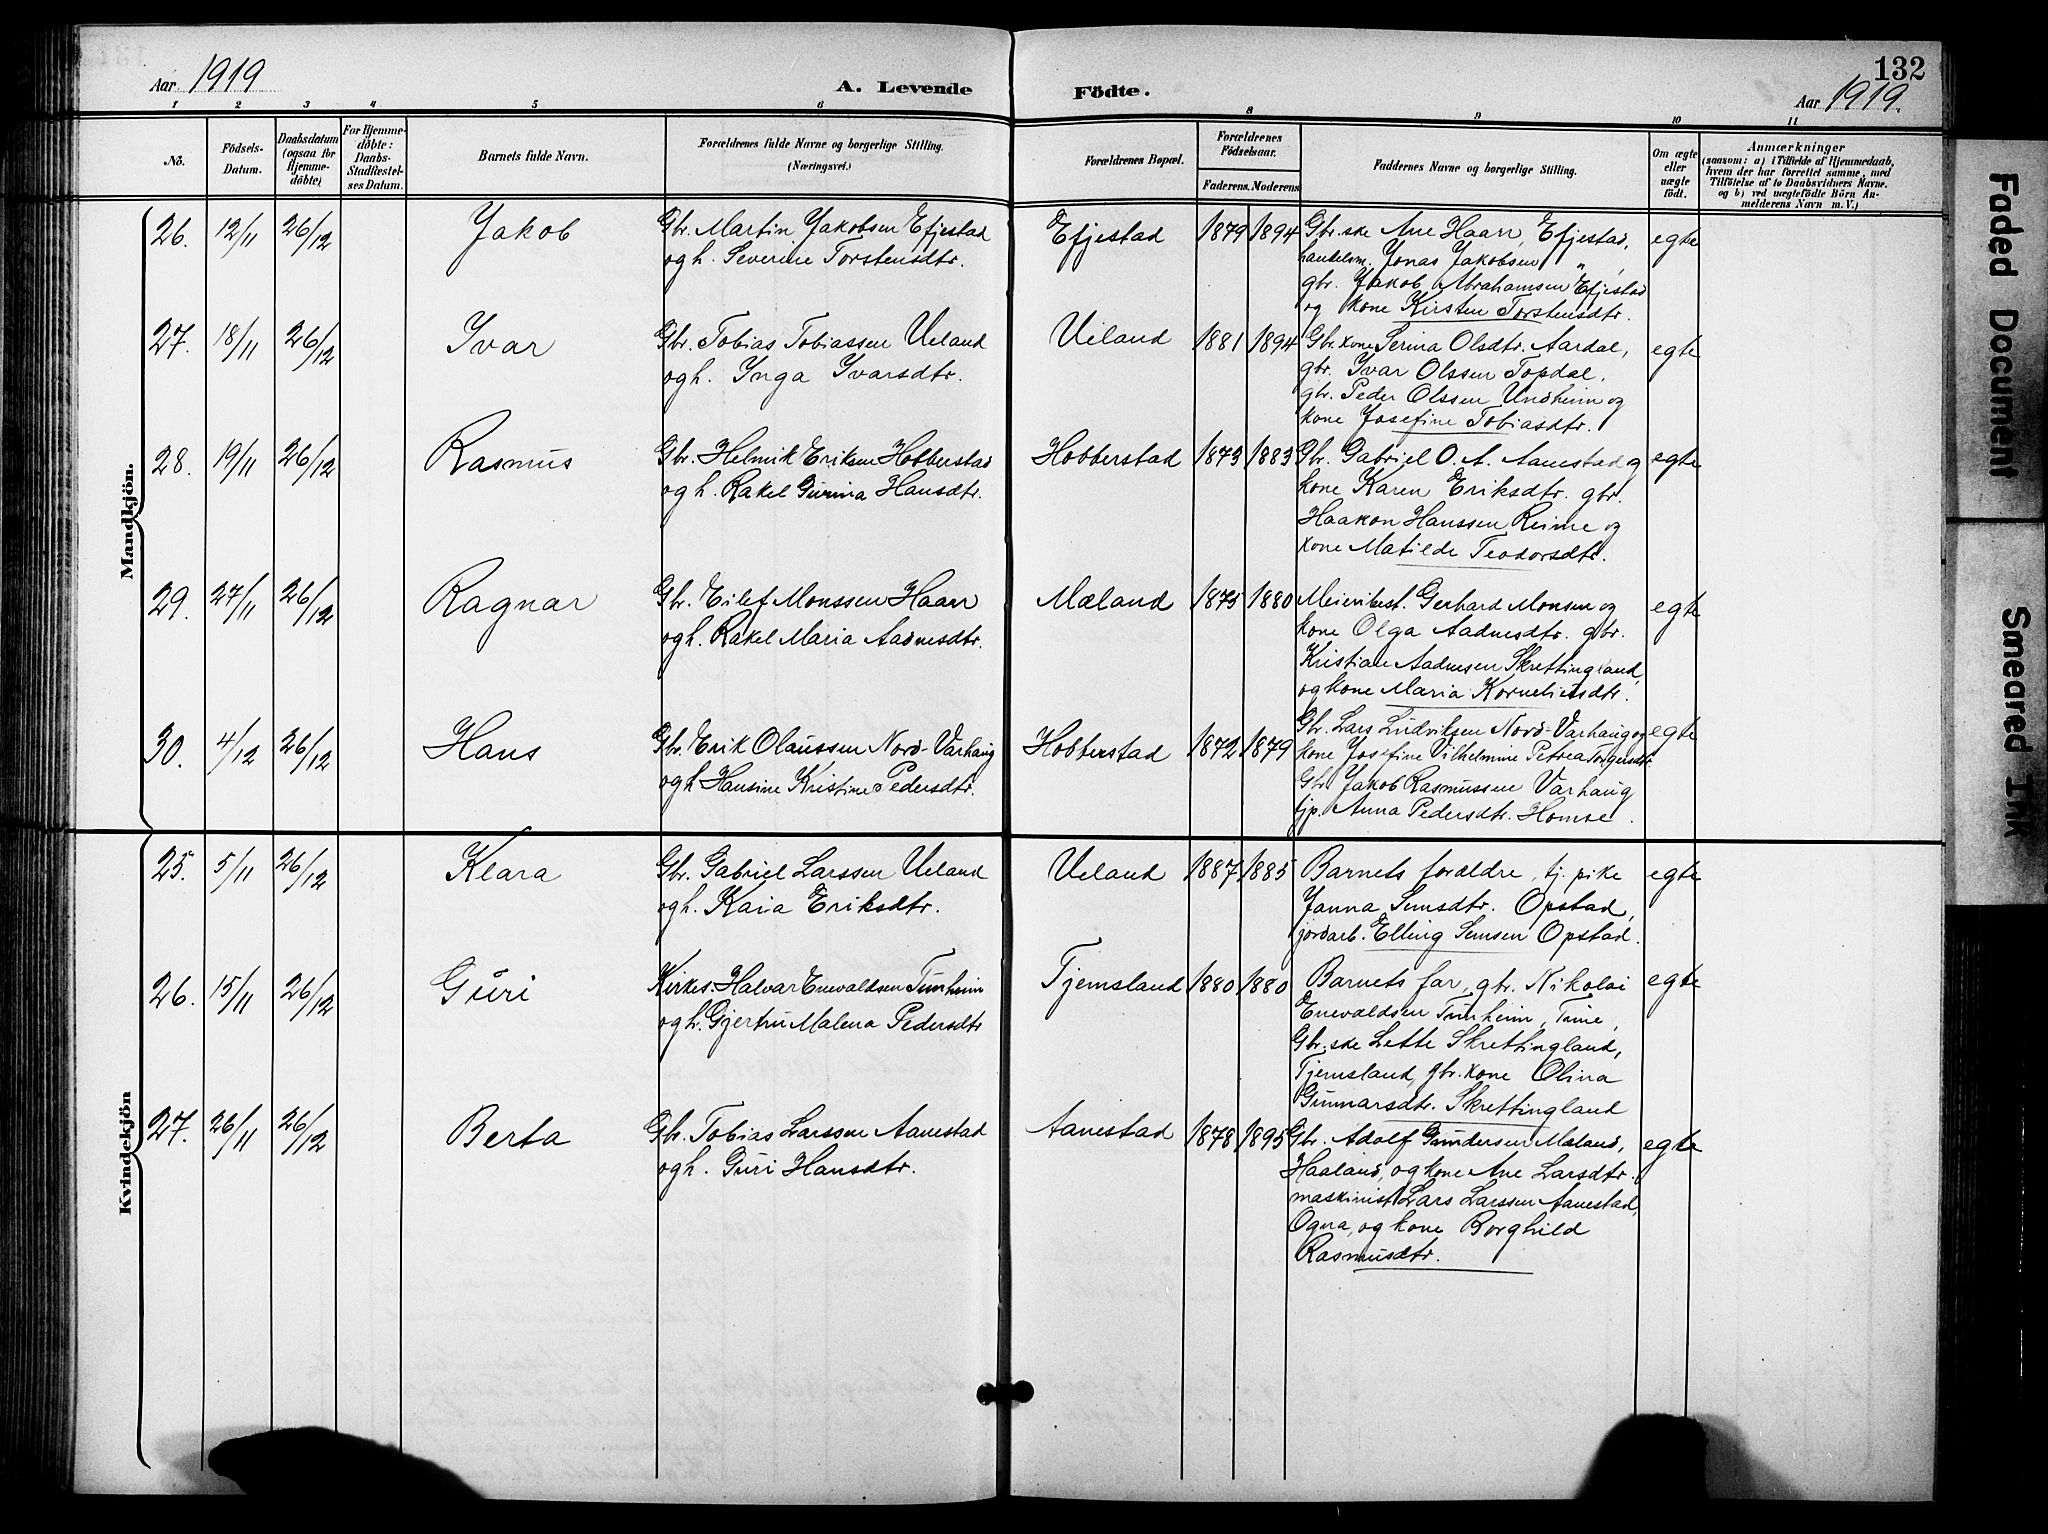 Aar 1919
A. Levende Födte.
132
Aar 1919.
1 2 3 4 5 6 8 9 10 11
Nö.
Födsels-Datum.
Daabsdatum (ogsaa for Hjemme-döbte)
For Hjemme-döbte: Daabs-Stadfæstel-ses Datum.
Barnets fulde Navn.
Forældrenes fulde Navne og borgerlige Stilling.
(Næringsvei.)
Forældrenes Bopæl.
Forældrenes Födselsaar.
Faderens. Moderens.
Faddernes Navne og borgerlige Stilling.
Om ægte eller uægte födt.
Anmærkninger
(saasom: a) i Tilfælde af Hjemmedaab, hvem der har forrettet samme, med Tilföielse af to Daabsvidners Navne. og b) ved uægtefödte Börn An-melderens Navn m. V.)
Mandkjön.
26. 12/11 26/12 Jakob Gbr. Martin Jakobsen Efjestad Efjestad 1879 1894 Gbr.ske Ane Haar, Efjestad, egte
ogh. Severine Torstensdtr. handelsm. Jonas Jakobsen "
gbr. Jakob Abrahamsen Efjestad
og kone Kirsten Torstensdtr.
27. 18/11 26/12 Ivar Gbr. Tobias Tobiassen Ueland Ueland 1881 1894 Gbr.kone Serina Olsdtr. Aardal, egte
ogh. Inga Ivarsdtr. gbr. Ivar Olssen Topdal,
gbr. Peder Olssen Undheim og
kone Josefine Tobiasdtr.
28. 19/11 26/12 Rasmus Gbr. Helmik Eriksen Hobberstad Hobberstad 1873 1883 Gbr. Gabriel O. A. Aanestad og egte
ogh. Rakel Gurina Hansdtr. kone Karen Eriksdtr. gbr.
Haakon Hanssen Reime og
kone Matilde Teodorsdtr.
29. 27/11 26/12 Ragnar Gbr. Eilef Monssen Haar Mæland 1875 1880 Meieribest. Gerhard Monsen og egte
ogh. Rakel Maria Aadnesdtr. kone Olga Aadnesdtr. gbr.
Kristian Aadnesen Skrettingland,
og kone Maria Korneliusdtr.
30. 4/12 26/12 Hans Gbr. Erik Olaussen Nord-Varhaug Hobberstad 1872 1879 Gbr. Lars Ludviksen Nord-Varhaug og egte
ogh Hansine Kristine Pedersdtr. kone Josefine Vilhelmine Petrea Torgersdtr.
Gbr. Jakob Rasmussen Varhaug
tjp. Anna Pedersdtr. Homse.
Kvindekjön
25. 5/11 26/12 Klara Gbr. Gabriel Larssen Ueland Ueland 1887 1885 Barnets forældre, tj. pike egte
ogh. Kaia Eriksdtr. Janna Semsdtr. Opstad,
jordarb. Elling Semsen Opstad.
26. 15/11 26/12 Guri Kirkes. Halvar Enevaldsen Tunheim Tjemsland 1880 1880 Barnets far, gbr. Nikolai egte
ogh. Gjertru Malena Pedersdtr Enevaldsen Tunheim, Time,
Gbr.ske Lette Skrettingland,
Tjemsland, gbr. kone Olina
Gunnarsdtr. Skrettingland
27. 26/11 26/12 Berta Gbr. Tobias Larssen Aanestad Aanestad 1878 1895 Gbr. Adolf Gundersen Mæland, egte
ogh. Guri Hansdtr. Haaland, og kone Ane Larsdtr.
maskinist Lars Larssen Aanestad,
Ogna, og kone Borghild
Rasmusdtr.
Faded Document
Smeared Ink